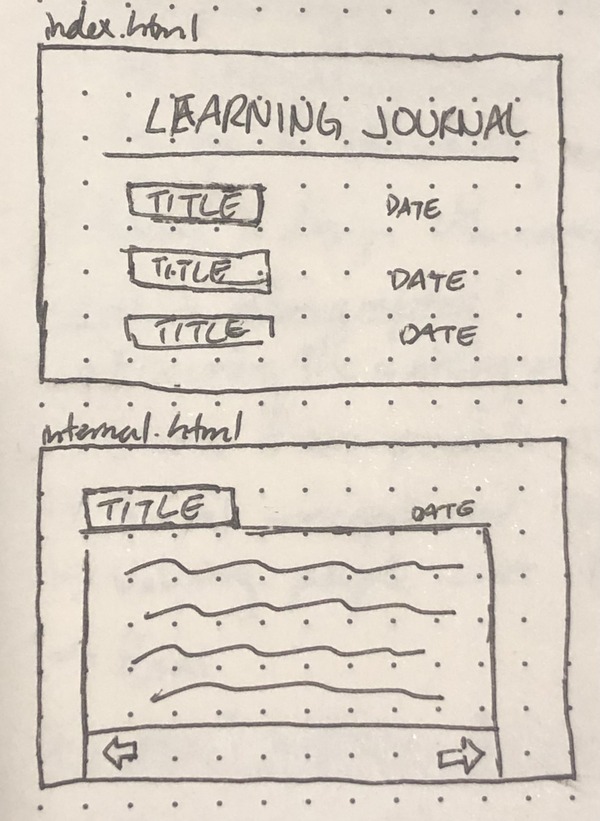 index.html
LEARNING JOURNAL
TITLE DATE
TITLE DATE
TITLE DATE
internal.html
TITLE DATE